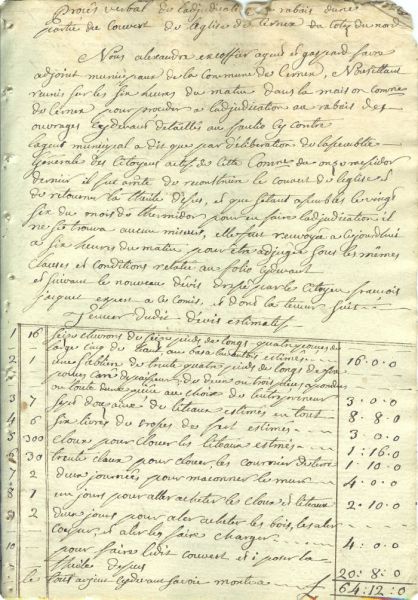 Procès verbal de ladjudication au rabais dune
partie du couvert de leglise de Cernex du coté du nord
Nous alexandre excoffier agent et gaspard favre
adjoint municipaux de la commune de Cernex, Nous etant
reunis sur les six heures du matin dans la maison comne
de Cernex pour proceder a ladjudication au rabais des
ouvrages cydevant detaillés au folio cy contre
lagent municipal a dit que par déliberation de lassemblée
generale des Citoyens actifs de cette Comne du onze messidor
dernier il fut arreté de reconstruire le couvert de leglise et
de retourner la thuile dessus, et que setant assemblés le vingt
six du mois de thermidor pour en faire ladjudication il
ne se trouva aucun miseur, elle fut renvoyée a cejourdhui
a six heures du matin pour etre adjugée sous les memes
clauses et conditions relatées au folio cydevant
et suivant le nouveau devis dressé par le Citoyen francois
jacquet expert a ce comis, et dont la teneur suit
Teneur dudit devis estimatif
1 16 seize chevrons de seize pieds de longs quatre pouces de
large cinq de haut au bas estimés 16:0:0
2 1 une sabliere de trente quatre pieds de longs de six
pouces carré depaisseur, de deux ou trois pieces
ou toute dune piece au choix de lentrepreneur 3:0:0
3 7 sept douzaine de liteaux estimés en tout 8:8:0
4 6 six livres de de fert estimés 3:0:0
5 300 cloux pour clouer les liteaux estimés 1:16:0
6 30 trente cloux pour clouer les 1:10:0
7 2 deux journées pour maconner le mur 4:0:0
8 1 un jours pour aller acheter le cloux et liteaux 2:10:0
9 2 deux jours pour aler acheter les bois, les aler
couper, et aler les faire charger 4:0:0
10 pour faire ledit couvert et pour la
thuile dessus 20:8:0
le tout au cydevant savoir monte a £ 64:12:0